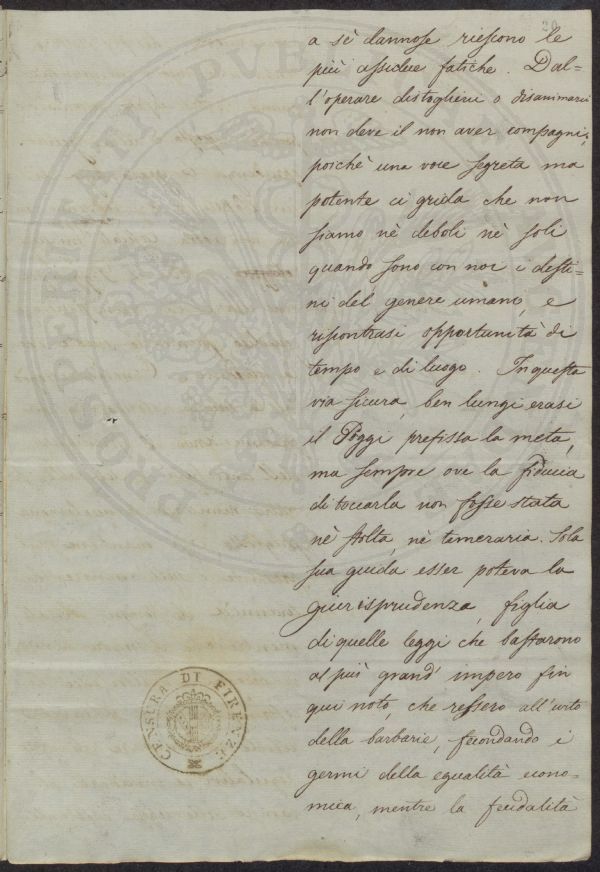 20
a sè dannose riescono le
più assidue fatiche. Dal=
l'operare distoglierci o disanimarci
non deve il non aver compagni,
poichè una voce segreta ma
potente ci grida che non
siamo nè deboli nè soli
quando sono con noi i desti=
ni del genere umano, e
riscontrasi opportunità di
tempo e di luogo. In questa
via sicura, ben lungi erasi
il Poggi prefissa la meta,
ma sempre ove la fiducia
di toccarla non fosse stata
nè stolta, nè temeraria. Sola
sua guida esser poteva la
giurisprudenza, figlia
di quelle leggi che bastarono
al più grand' impero fin
qui noto, che ressero all'urto
della barbarie, fecondando i
germi della egualità econo=
mica, mentre la feudalità
CENSURA DI FIRENZE
PROSPERITATI PUBL